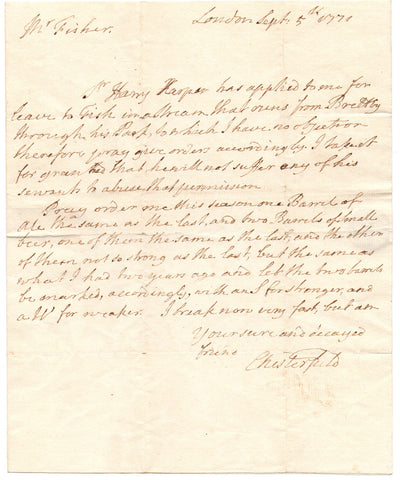 Mr Fisher.
London Sept. 5th 1771
Sr. Harry Harper has applied to me for
leave to Fish in a stream that runs from Bretby
through his Park, to which I have no objection
therefore pray give orders accordingly. I take it
for granted that he will not suffer any of his
servants to abuse that permission.
Pray order me this season one Barrel of
ale the same as the last, and two Barrels of small
beer, one of them the same as the last, and the other
of them not so strong as the last, but the same as
what I had two years ago and let the two barrels
be marked, accordingly, with an S for stronger, and
a W for weaker. I break now very fast, but am
Your sure and decayed
friend
Chesterfield